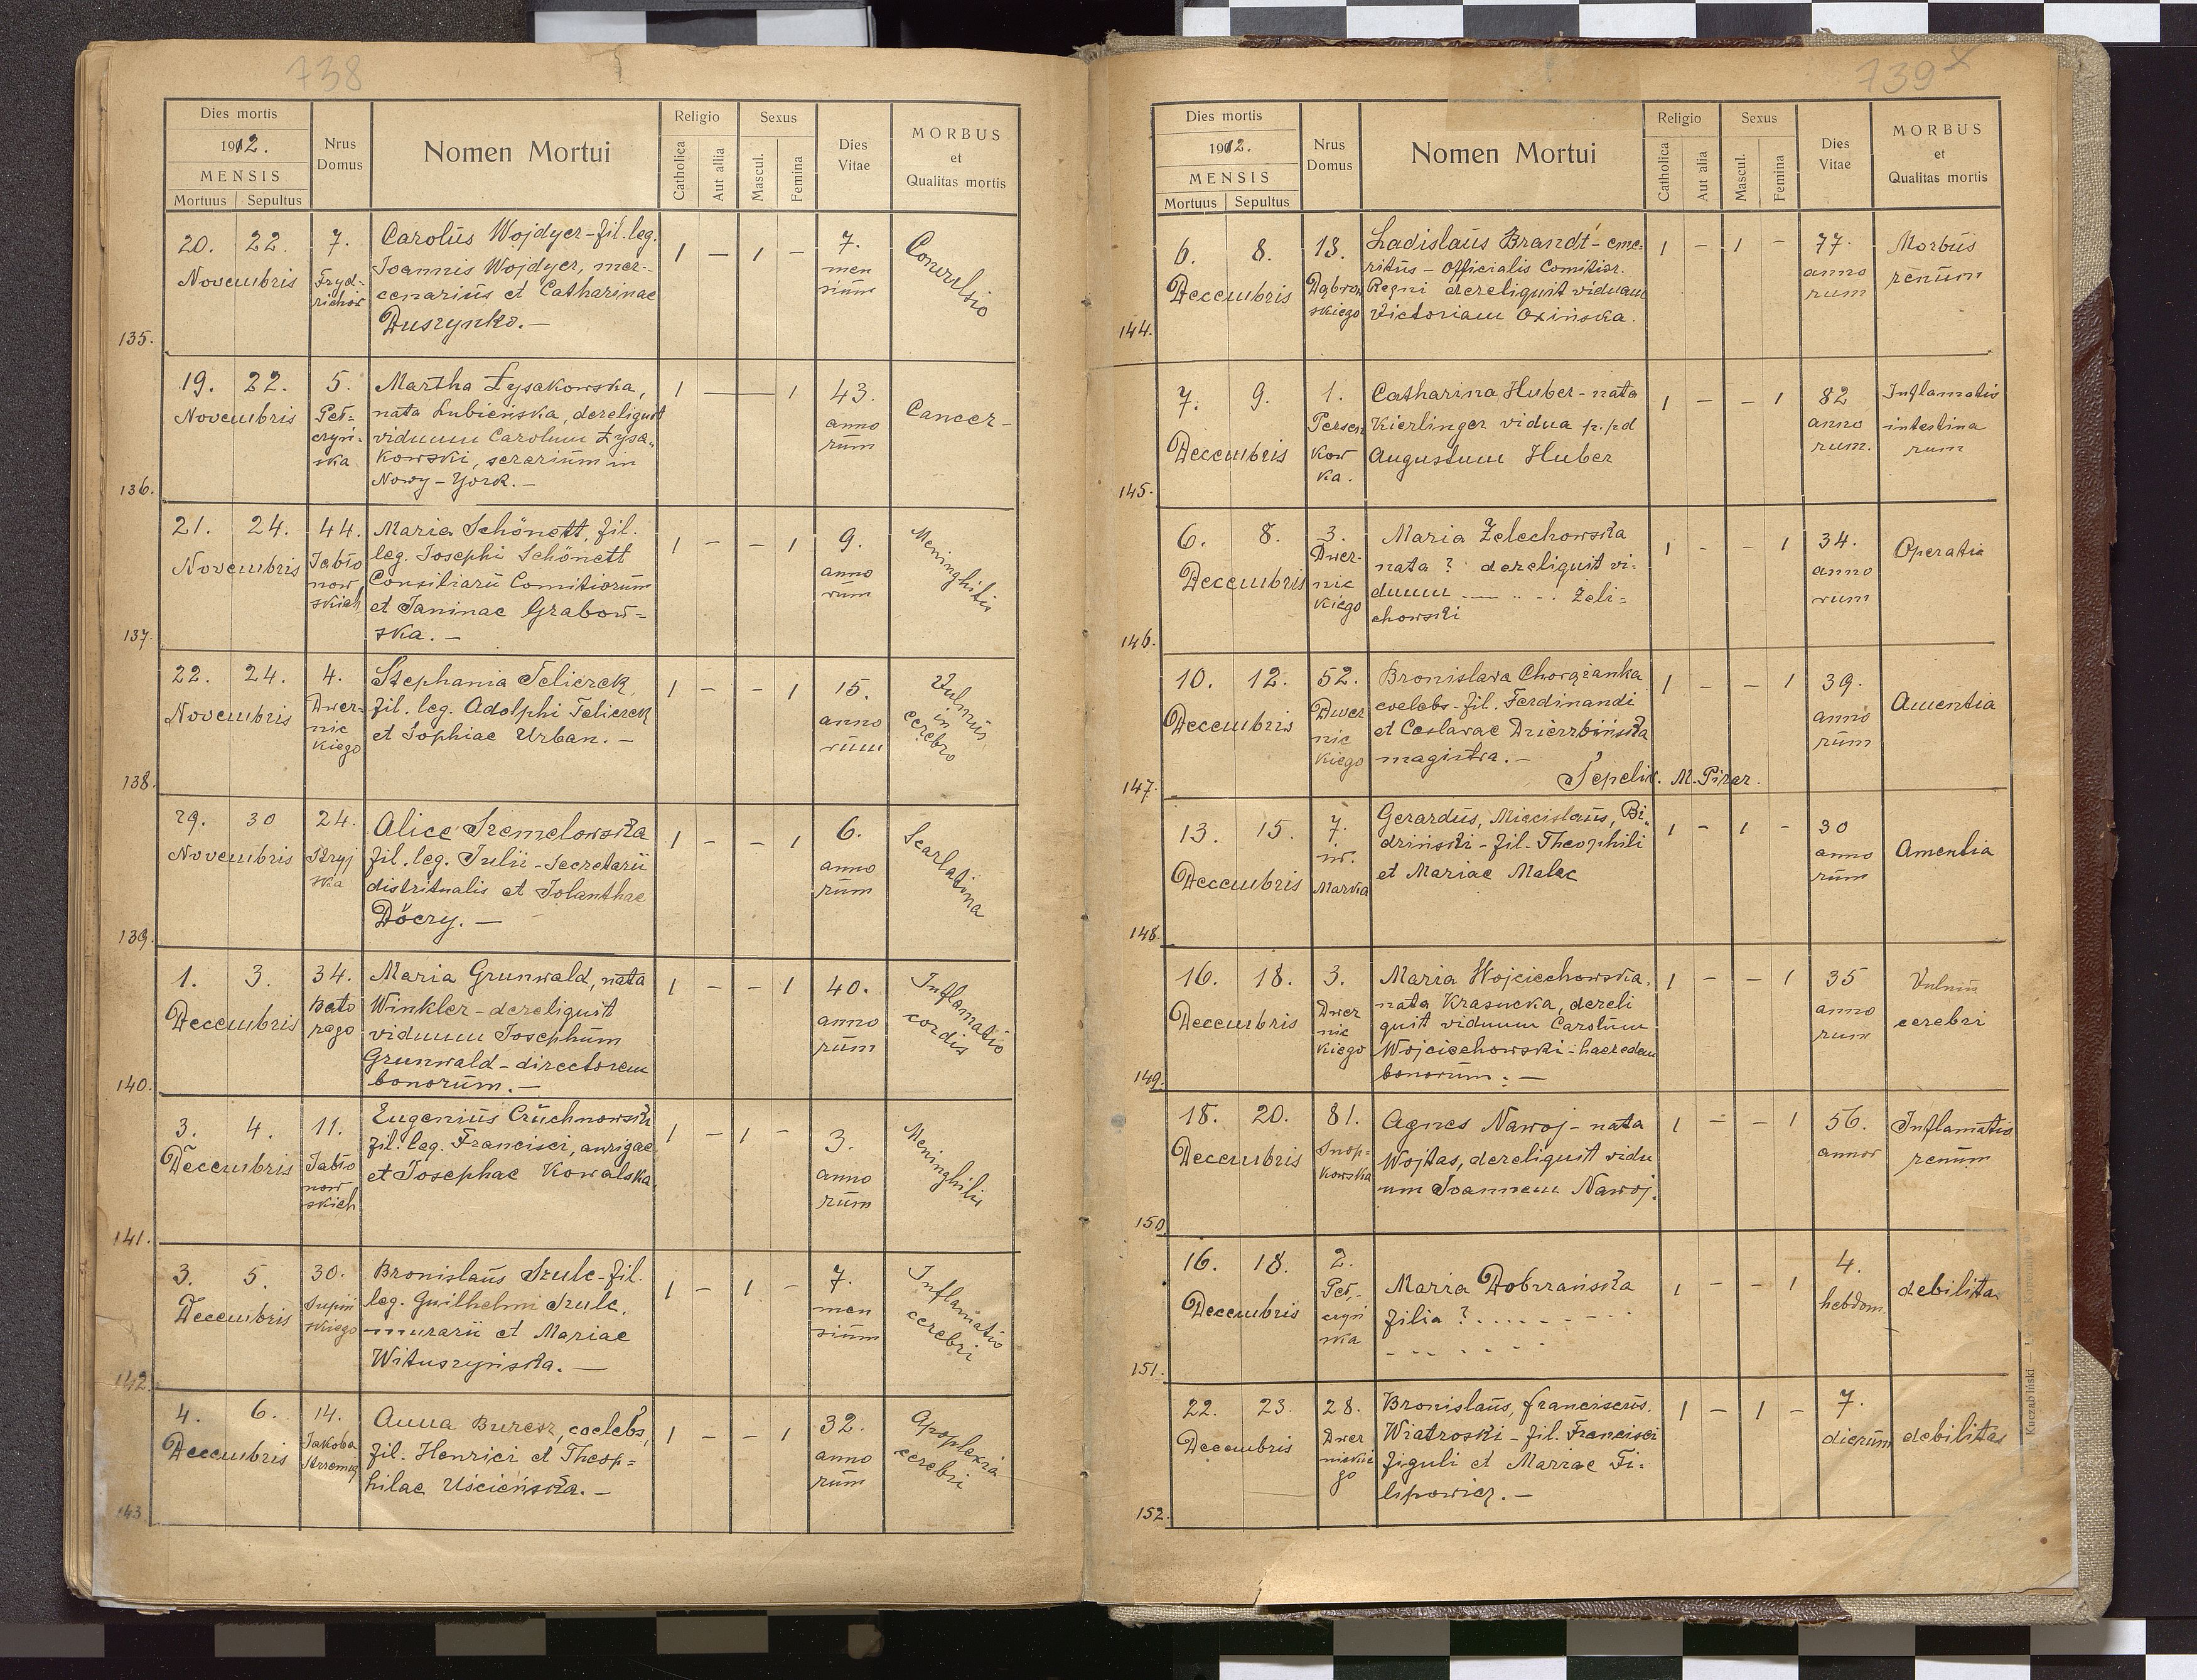 738
Dies mortis
1912.
MENSIS
Mortuus Sepultus
Nrus Domus
Nomen Mortui
Religio
Catholica
Aut allia
Sexus
Mascul.
Femina
Dies Vitae
MORBUS
et
Qualitas mortis
135.
20. 22. Novembris
7. Fryd-
richow
Carolus Wojdyer-fil. leg.
Joannis Wojdyer, mer-
cenarius et Catharinae
Duszynko.-
1 - 1 -
7.
men
sium
Convulsio
136.
19. 22.
Novembris
5.
Peł-
czyń-
ska
Martha Łysakowska,
nata Lubieńska, dereliquit
viduum Carolum Łysa-
kowski, serarium in
Nowy-York.-
1 - 1
43.
anno
rum
Cancer-
137.
21. 24.
Novembris
44.
Jabło
now
skich
Maria Schönett, fil.
leg. Josephi Schönett
Consiliarii Comitiorum
et Janinae Grabow-
ska.-
1 - - 1
9.
anno
rum
Meninghitis
138.
22. 24.
Novembris
4.
Dwer-
nic
kiego
Stephania Telierek
fil. leg. Adolphi Telierek
et Sophiae Urban.-
1 - - 1
15.
anno
rum
Vulnus
in
cerebro
139.
29. 30
Novembris
24.
Stryj
ska
Alice Szemelowska
fil. leg. Julii-Secretarii
distritualis et Jolanthae
Döery.-
1 - - 1
6.
anno
rum
Scarlatina
140.
1. 3.
Decembris
34.
Bato
rego
Maria Grunwald, nata
Winkler-dereliquit
viduum Josephum
Grunwald-directorem
bonorum.-
1 - - 1
40.
anno
rum
Inflamatio
cordis
141.
3. 4.
Decembris
11.
Jabło
now
skich
Eugenius Czuchnowski
fil. leg. Francisci, aurigae
et Josephae Kowalska.
1 - 1 -
3.
anno
rum
Meninghitis
142.
3. 5.
Decembris
30.
Supiń
skiego
Bronislaus Szulc-fil.
leg. Guilhelmi Szulc,
murarii et Mariae
Wituszyńska.-
1 - 1 -
7.
men
sium
Inflamatio
cerebri
143.
4. 6.
Decembris
14.
Jakoba
Strzemię
Anna Buresz, coelebs,
fil. Henrici et Theop=
hilae Uścieńska.-
1 - - 1
32.
anno
rum
Apoplexia
cerebri
739
Dies mortis
1912.
MENSIS
Mortuus Sepultus
Nrus Domus
Nomen Mortui
Religio
Catholica
Aut alia
Sexus
Mascul.
Femina
Dies Vitae
MORBUS
et
Qualitas mortis
144.
6. 8.
Decembris
18.
Dąbrow
skiego
Ladislaus Brandt-eme-
ritus-Officialis Comitior.
Regni dereliquit viduam
Victoriam Oxińska.
1 - 1 -
77.
anno
rum
Morbus
renum
145.
7. 9.
Decembris
1.
Persen
kow
ka.
Catharina Huber-nata
Kierlinger vidua p. pd
Augustum Huber
1 - - 1
82
anno
rum.
Inflamatio
intestina
rum
146.
6. 8.
Decembris
3.
Dwer-
nic
kiego
Maria Żelechowska
nata ? dereliquit vi-
duum - .. - . Żeli=
chowski
1 - - 1
34.
anno
rum
Operatio
147.
10. 12.
Decembris
52.
Dwer
nic
kiego
Bronislava Chorąžanka
coelebs-fil. Ferdinandi
et Ceslavae Dzierzbińska
magistra.-
Sepeliv. M. Pirar.
1 - - 1
39.
anno
rum
Amentia
148.
13. 15.
Decembris
7.
św.
Marka
Gerardus, Miecislaus, Bi-
driński-fil. Theophili
et Mariae Malec
1 - 1 -
30
anno
rum
Amentia
149.
16. 18.
Decembris
3.
Dwer
nic
kiego
Maria Wojciechowska.
nata Krasucka, dereli
quit viduum Carolum
Wojciechowski-haeredem
bonorum.-
1 - - 1
35
anno
rum
Vulnus
cerebri
150
18. 20.
Decembris
81.
Snop-
kowska
Agnes Nawoj-nata
Wojtas, dereliquit vidu
um Joannem Nawoj.
1 - - 1
56.
annor
Inflamatio
renum
151.
16. 18.
Decembris
2.
Peł-
czyń
ska
Maria Dobrzańska
filia ? . . . . . . . .
1 - - 1
4.
hebdom.
debilitas
152.
22. 23.
Decembris
28.
Dwer
nickie
go
Bronislaus, Franciscus.
Wiatroski-fil. Francisci
figuli et Mariae Fi-
lipowicz.-
1 - 1 -
7.
dierum
debilitas